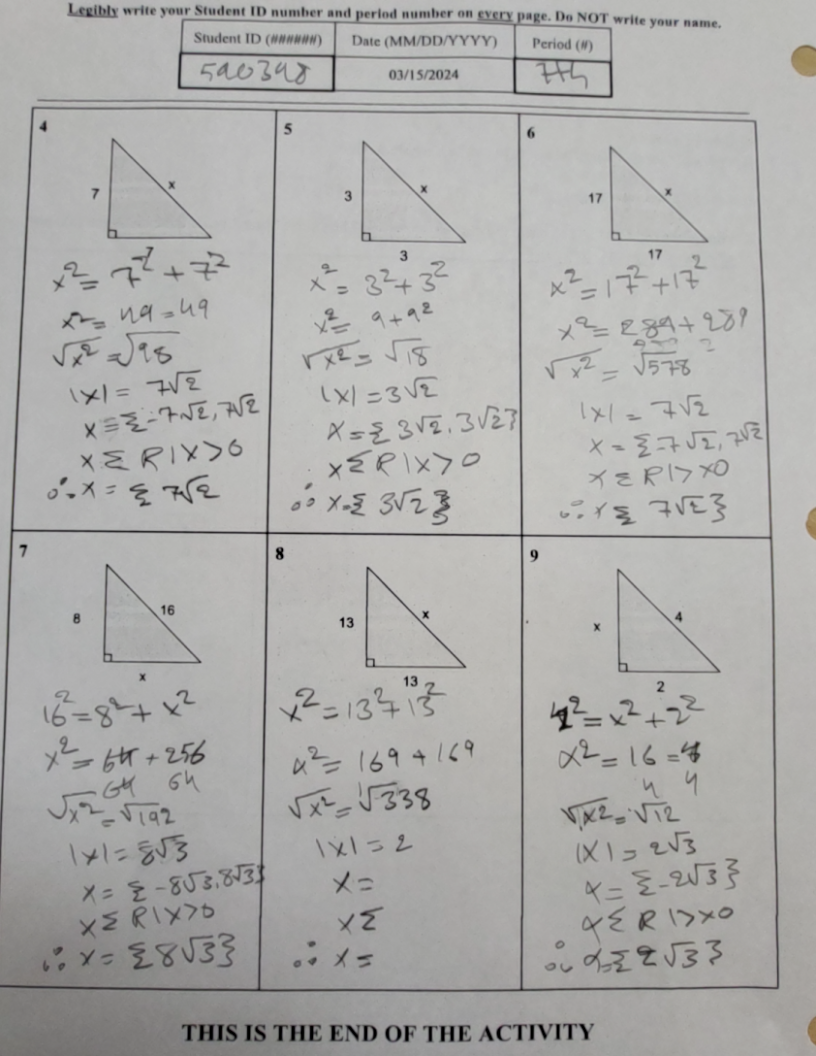 Legibly write your Student ID number and period number on every page. Do NOT write your name.
Student ID (######) Date (MM/DD/YYYY) Period (#)
590398 03/15/2024 7th
4
7
x
x² = 7² + 7²
x² = 49 = 49
√x² = √98
|x| = 7√2
x = {-7√2, 7√2
x Σ R | x > 0
∴ x = { 7√2
5
3
x
3
x² = 3² + 3²
x² = 9 + 9²
√x² = √18
|x| = 3√2
x = { 3√2, 3√2}
x Σ R | x > 0
∴ x = { 3√2 }
6
17
x
17
x² = 17² + 17²
x² = 289 + 289
√x² = √578
|x| = 7√2
x = {-7√2, 7√2
x Σ R | > x0
∴ x { 7√2 }
7
8
16
x
16² = 8² + x²
x² = 64 + 256
64 64
√x² = √192
|x| = 8√3
x = { -8√3, 8√3}
x Σ R | x > 0
∴ x = {8√3}
8
13
x
13
x² = 13² + 13²
x² = 169 + 169
√x² = √338
|x| = 2
x =
x Σ
∴ x =
9
x
4
2
4² = x² + 2²
x² = 16 = 4
4 4
√x2 = √12
|x| = 2√3
x = {-2√3}
x Σ R | > x0
∴ x = {2√3}
THIS IS THE END OF THE ACTIVITY